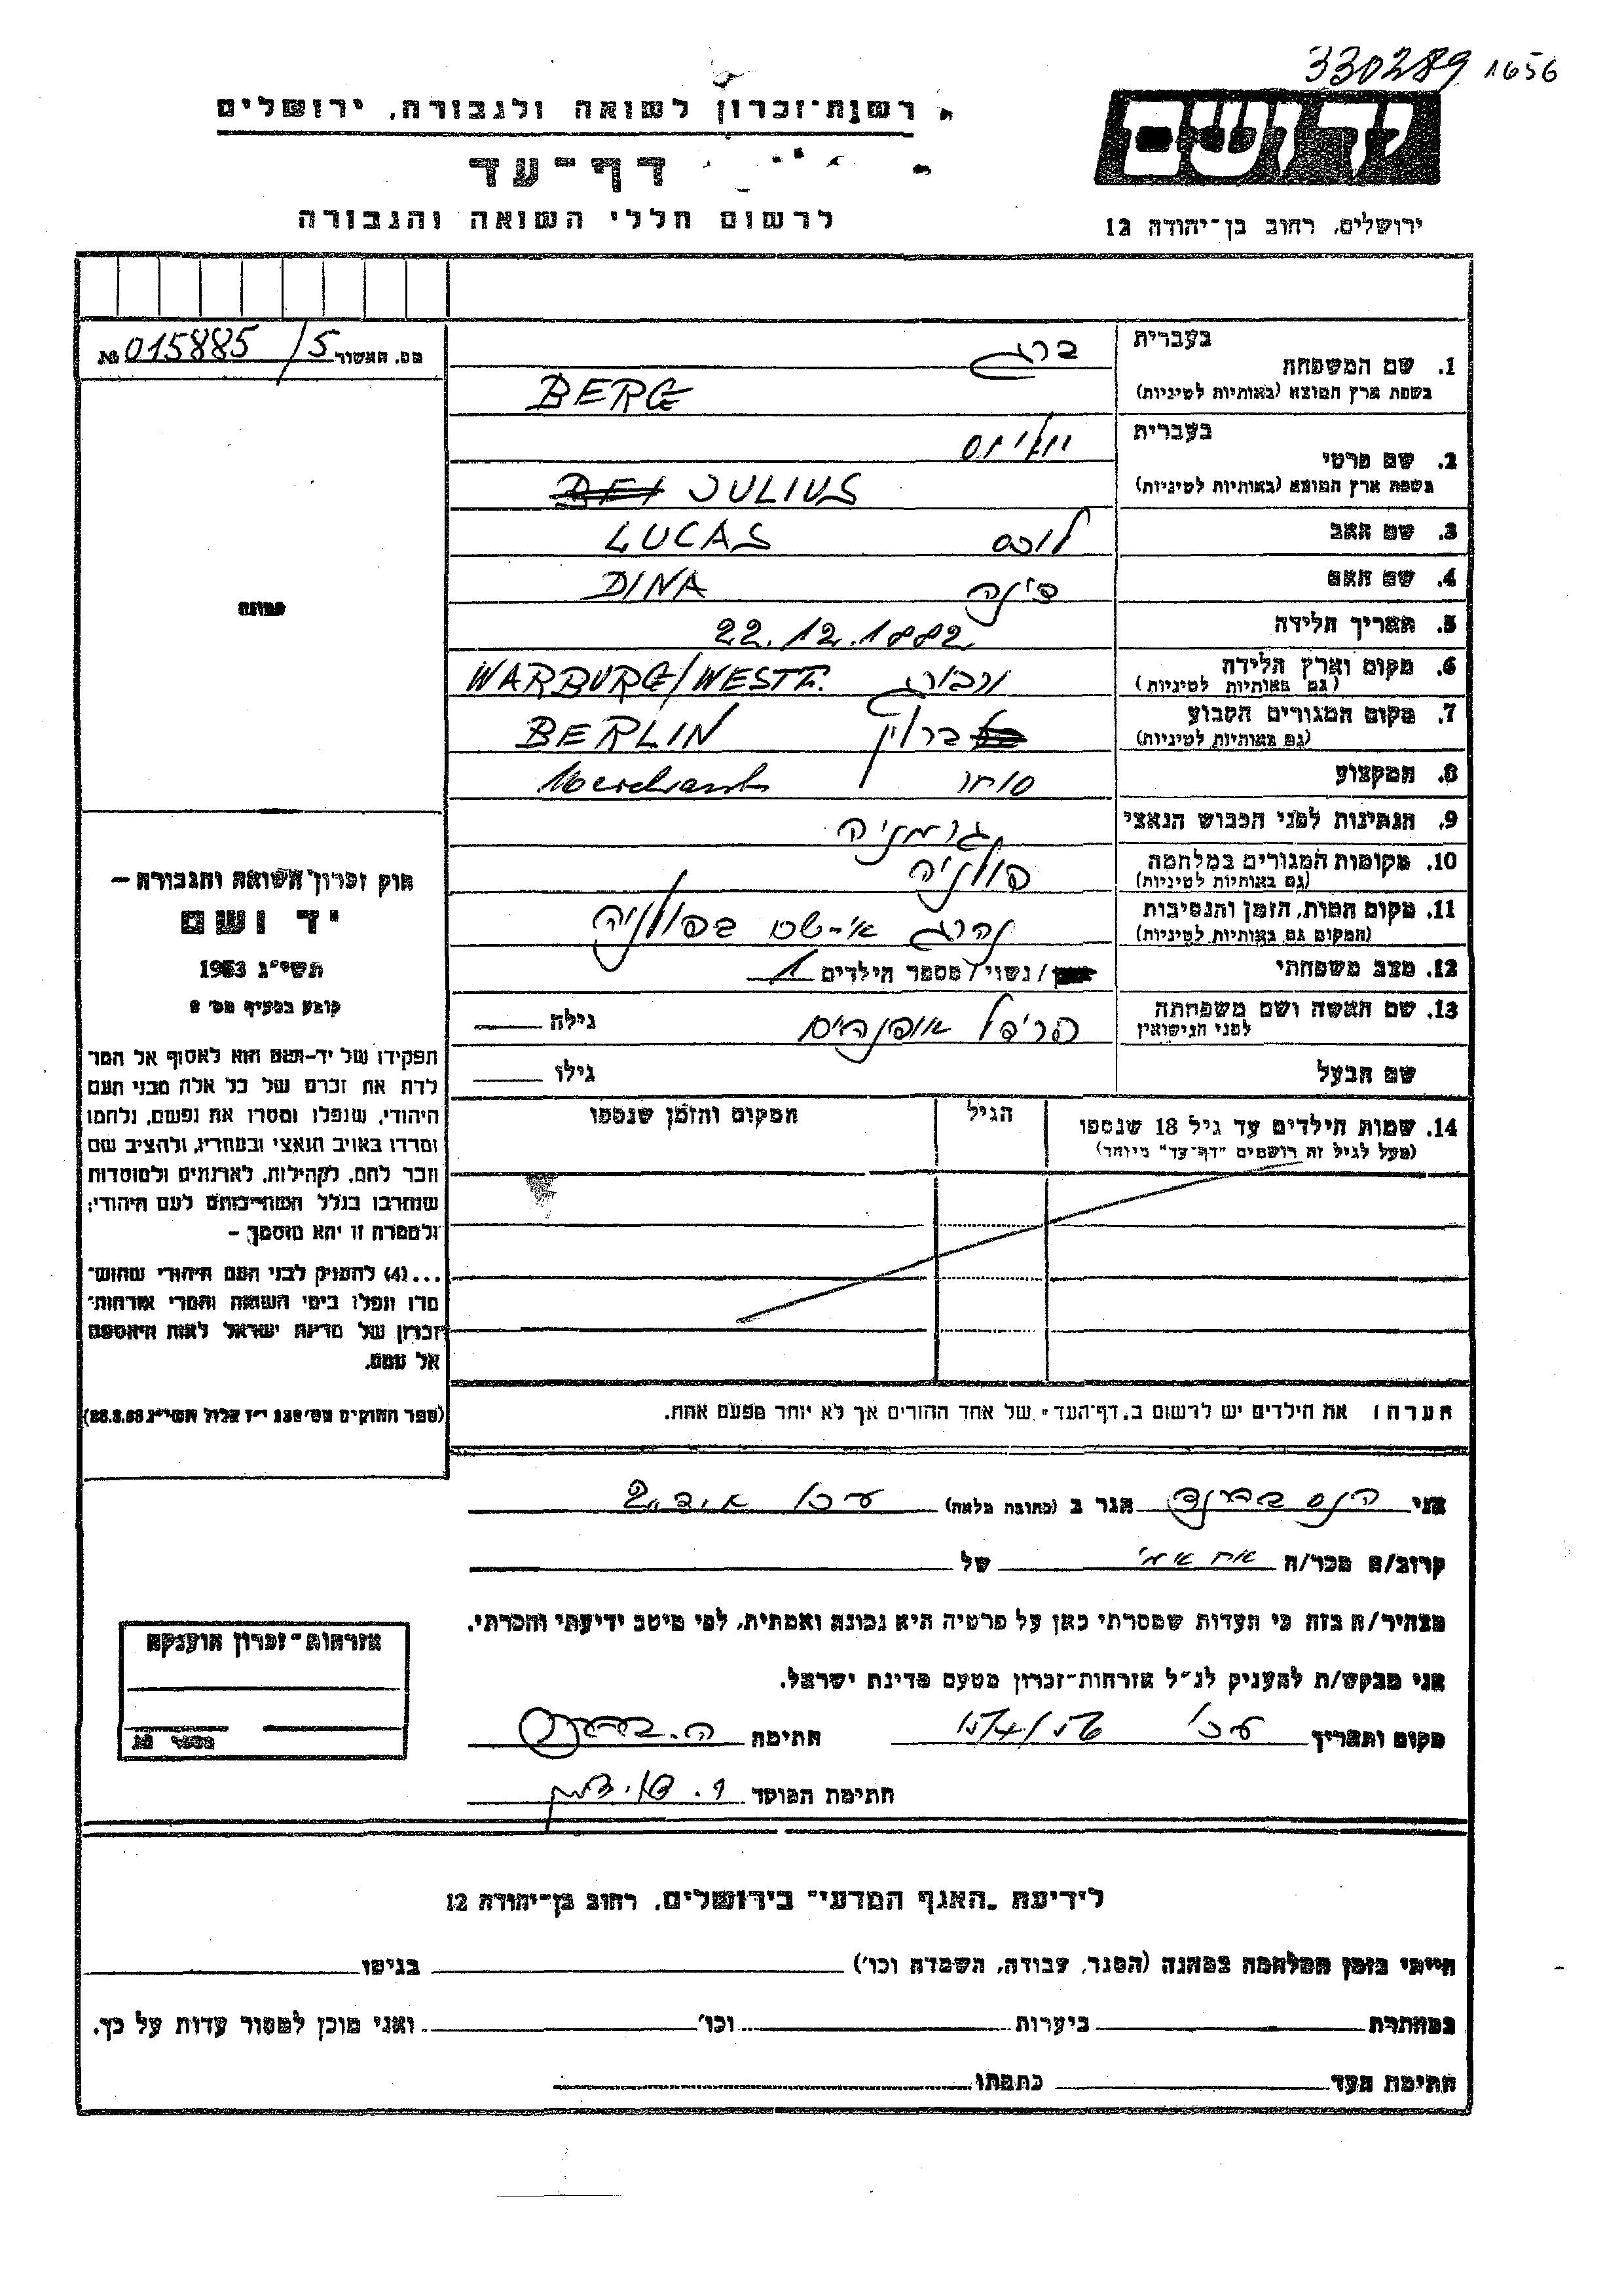 330289 1656
יד ושם
ירושלים, רחוב בן-יהודה 12
רשות-זכרון לשואה ולגבורה, ירושלים
דף-עד
לרשום חללי השואה והגבורה
מס. האשור 5/ 015885 №
תמונה
חוק זכרון השואה והגבורה –
יד ושם
תשי״ג 1953
קובע בסעיף מס׳ 2
תפקידו של יד-ושם הוא לאסוף אל המו
לדת את זכרם של כל אלה מבני העם
היהודי, שנפלו ומסרו את נפשם, נלחמו
ומרדו באויב הנאצי ובעוזריו, ולהציב שם
וזכר להם, לקהילות, לארגונים ולמוסדות
שנחרבו בגלל השתייכותם לעם היהודי;
ולמטרה זו יהא מוסמך –
...(4) להעניק לבני העם היהודי שהוש־
מדו ונפלו בימי השואה והמרי אזרחות־
זכרון של מדינת ישראל לאות היאספם
אל עמם.
(ספר החוקים מס׳ 132 י״ז אלול תשי״ג 28.8.53)
בעברית ברג
1. שם המשפחה
בשפת ארץ המוצא (באותיות לטיניות) BERG
בעברית יוליוס
2. שם פרטי
בשפת ארץ המוצא (באותיות לטיניות) BEI JULIUS
3. שם האב לוכס LUCAS
4. שם האם דינה DINA
5. תאריך הלידה 22.12.1882
6. מקום וארץ הלידה ורבורג WARBURG/WESTF.
(גם באותיות לטיניות)
7. מקום המגורים הקבוע ברלין BERLIN
(גם באותיות לטיניות)
8. המקצוע סוחר Merchant
9. הנתינות לפני הכבוש הנאצי גרמניה
10. מקומות המגורים במלחמה פולניה
(גם באותיות לטיניות)
11. מקום המות, הזמן והנסיבות נהרג אי-שם בפולניה
(המקום גם באותיות לטיניות)
12. מצב משפחתי / נשוי / מספר הילדים 1
13. שם האשה ושם משפחתה אופנהים גילה
לפני הנישואין
שם הבעל גילו
14. שמות הילדים עד גיל 18 שנספו הגיל המקום והזמן שנספו
(מעל לגיל זה רושמים "דף-עד" מיוחד)
הערה: את הילדים יש לרשום ב„דף-העד" של אחד ההורים אך לא יותר מפעם אחת.
אני הנס ברנד הגר ב (כתובת מלאה) עכו
קרוב/ה מכר/ה אח אמי של
מצהיר/ה בזה כי העדות שמסרתי כאן על פרטיה היא נכונה ואמתית, לפי מיטב ידיעתי והכרתי.
אני מבקש/ת להעניק לנ״ל אזרחות-זכרון מטעם מדינת ישראל.
מקום ותאריך עכו חתימה ה. ברנד
חתימת המוסד
אזרחות-זכרון הוענקה
מספר №
לידיעת „האגף המדעי״ בירושלים, רחוב בן-יהודה 12
הייתי בזמן המלחמה במחנה (הסגר, עבודה, השמדה וכו׳) בגיטו
במחתרת ביערות וכו׳ ואני מוכן למסור עדות על כך.
חתימת העד כתבתו